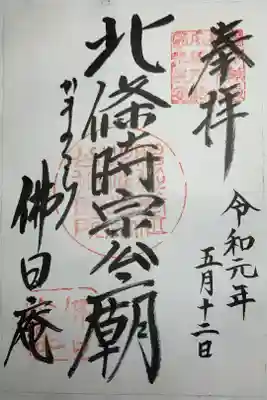 奉拝
令和元年
五月十二日
北條時宗公廟
かまくら
佛日庵